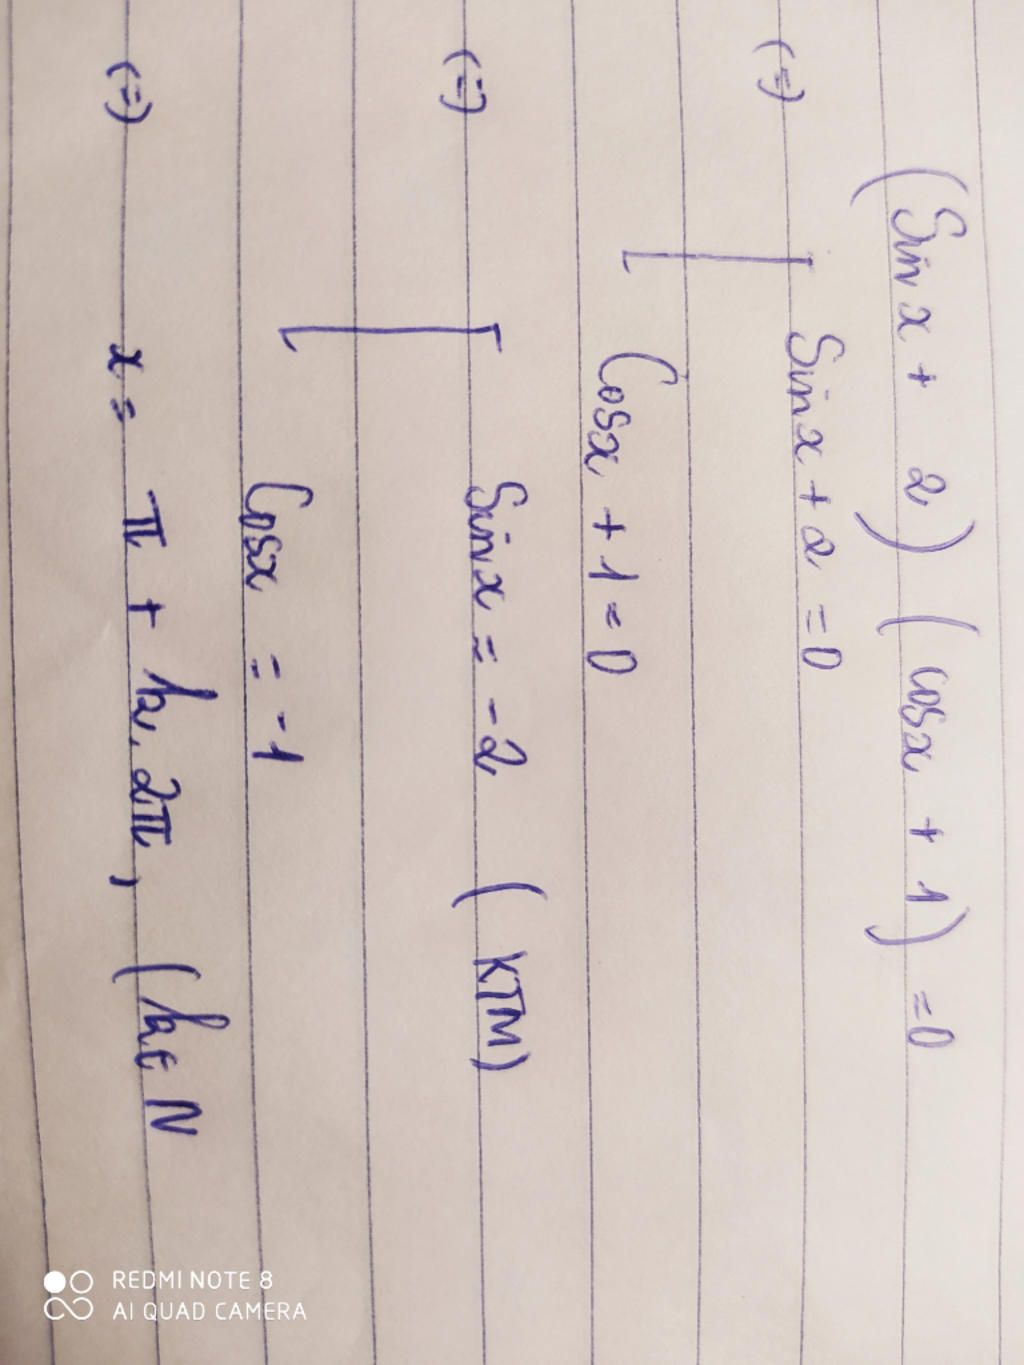 (Sin x + 2) (cosx + 1) = 0
(=) [ Sinx + 2 = 0
Cosx + 1 = 0
(=) [ Sinx = -2 (KTM)
Cosx = -1
(=) x = π + k.2π, (k ∈ N
REDMI NOTE 8
AI QUAD CAMERA